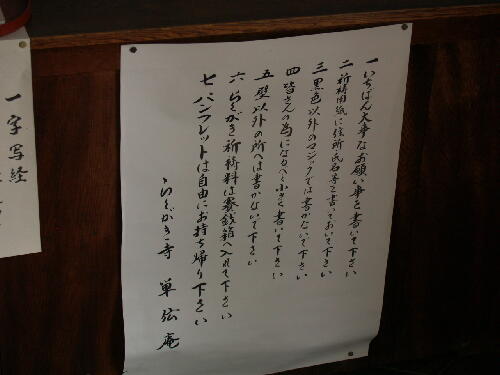 一 いちばん大事なお願い事を書いて下さい
二 祈祷用紙に住所氏名等を書いておいて下さい
三 黒色以外のマジックでは書かないで下さい
四 皆さんの為になるべく小さく書いて下さい
五 壁以外の所へは書かないで下さい
六 らくがき祈祷料は賽銭箱へ入れて下さい
七 パンフレットは自由にお持ち帰り下さい
らくがき寺 単伝庵
一字写経